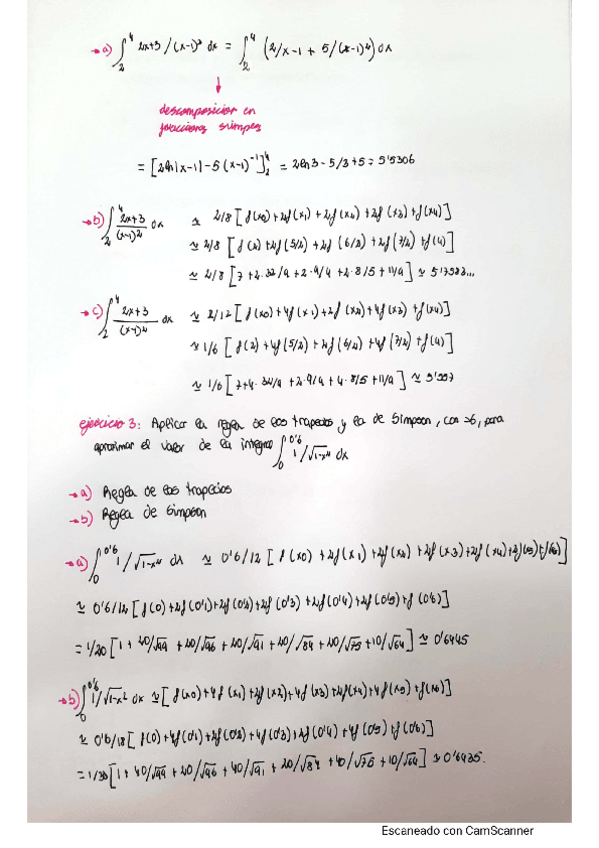 → a) ∫₂⁴ 2x+3 / (x-1)² dx = ∫₂⁴ (2/x-1 + 5/(x-1)²) dx
↓
descomposición en
fracciones simples
= [2ln|x-1| - 5(x-1)⁻¹]₂⁴ = 2ln3 - 5/3 + 5 = 5'5306
→ b) ∫₂⁴ 2x+3/(x-1)² dx ≃ 2/8 [f(x0) + 2f(x1) + 2f(x2) + 2f(x3) + f(x4)]
≃ 2/8 [f(2) + 2f(5/2) + 2f(6/2) + 2f(7/2) + f(4)]
≃ 2/8 [7 + 2·32/9 + 2·9/4 + 2·8/5 + 11/9]
→ c) ∫₂⁴ 2x+3/(x-1)² dx ≃ 2/12 [f(x0) + 4f(x1) + 2f(x2) + 4f(x3) + f(x4)]
≃ 1/6 [f(2) + 4f(5/2) + 2f(6/2) + 4f(7/2) + f(4)]
≃ 1/6 [7 + 4·32/9 + 2·9/4 + 4·8/5 + 11/9] ≃ 5'557
ejercicio 3: Aplicar la regla de los trapecios y la de Simpson, con =6, para
aproximar el valor de la integral ∫₀^0'6 1/√1-x² dx
→ a) Regla de los trapecios
→ b) Regla de Simpson
→ a) ∫₀^0'6 1/√1-x² dx ≃ 0'6/12 [f(x0) + 2f(x1) + 2f(x2) + 2f(x3) + 2f(x4) + 2f(x5) + f(x6)]
≃ 0'6/12 [f(0) + 2f(0'1) + 2f(0'2) + 2f(0'3) + 2f(0'4) + 2f(0'5) + f(0'6)]
= 1/20 [1 + 20/√99 + 20/√96 + 20/√91 + 20/√84 + 20/√75 + 10/√64] ≃ 0'6445
→ b) ∫₀^0'6 1/√1-x² dx ≃ [f(x0) + 4f(x1) + 2f(x2) + 4f(x3) + 2f(x4) + 4f(x5) + f(x6)]
≃ 0'6/18 [f(0) + 4f(0'1) + 2f(0'2) + 4f(0'3) + 2f(0'4) + 4f(0'5) + f(0'6)]
= 1/30 [1 + 40/√99 + 20/√96 + 40/√91 + 20/√84 + 40/√75 + 10/√64] ≃ 0'6435.
Escaneado con CamScanner